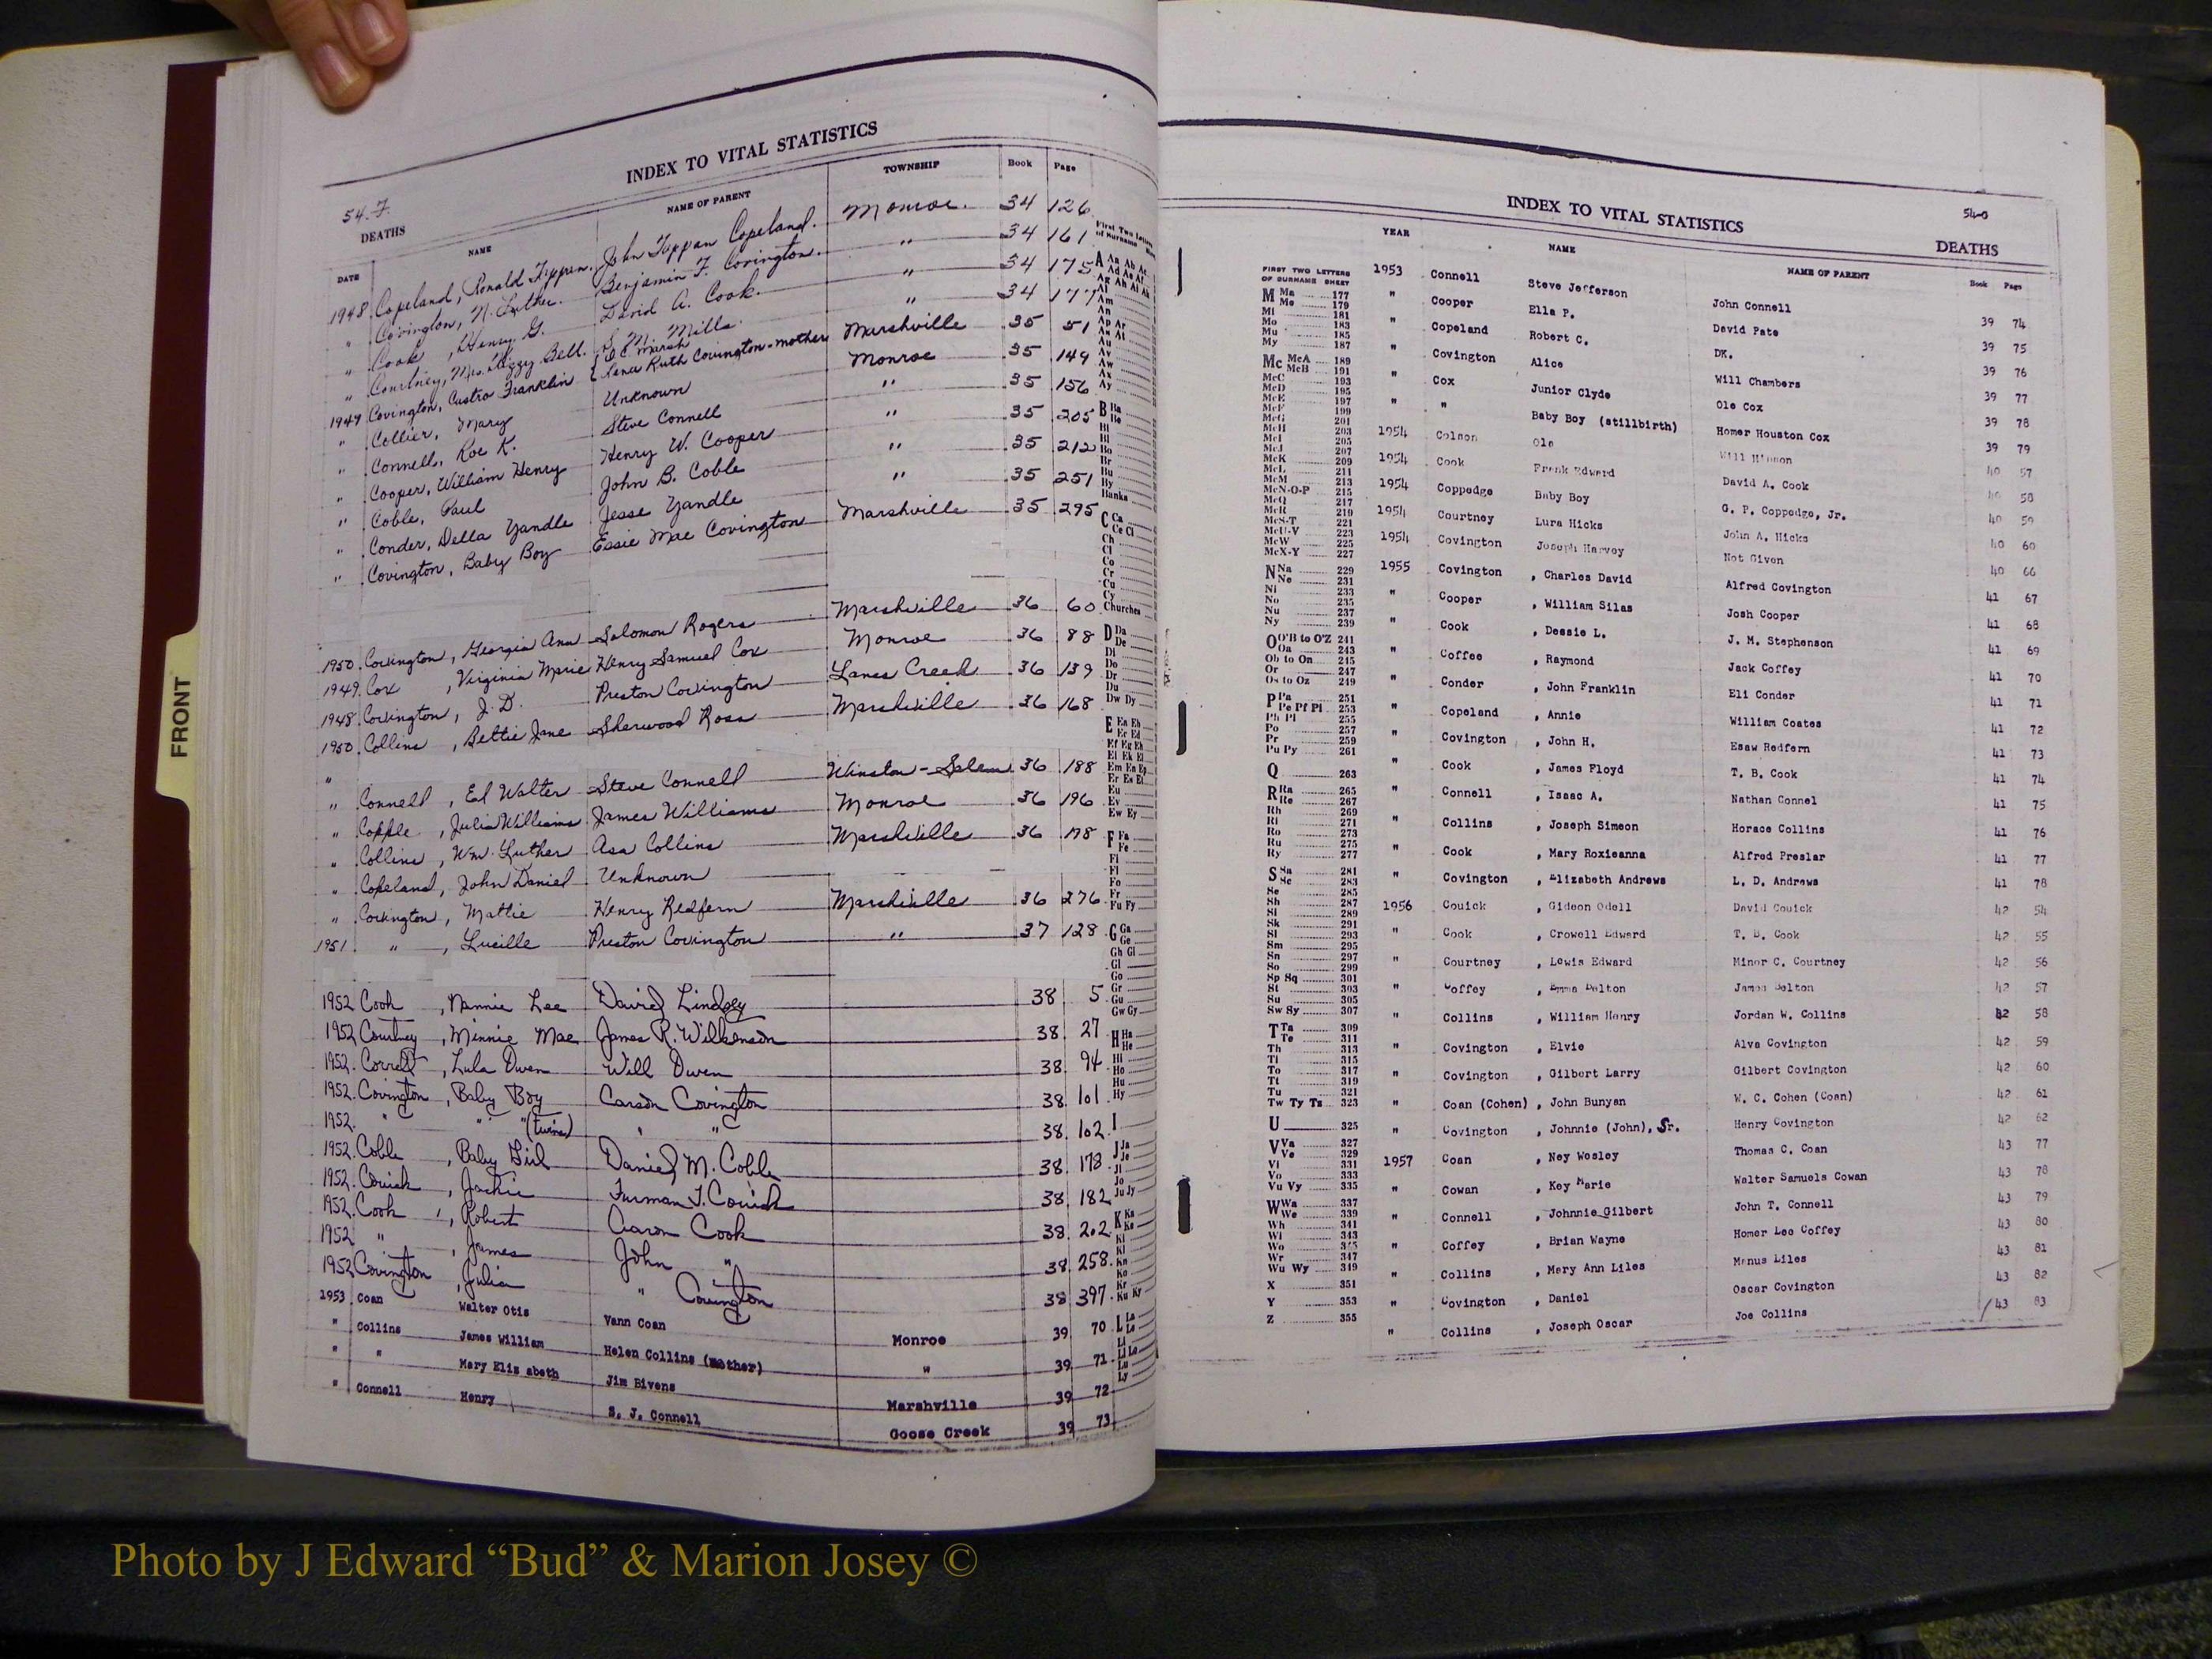 FRONT
INDEX TO VITAL STATISTICS
54-F
DEATHS
DATE NAME NAME OF PARENT TOWNSHIP Book Page
1948 Copeland, Ronald Tippan. John Tippan Copeland. Monroe. 34 126
" Covington, N. Luther. Benjamin F. Covington. " 34 161
" Cook, Henry G. David A. Cook. " 34 175
" Courtney, Mrs. Lizzy Bell. S. M. Mills. " 34 177
1949 Covington, Custro Franklin Lena Ruth Covington-mother Marshville 35 51
" Collier, Mary Unknown Monroe 35 149
" Connell, Roe K. Steve Connell " 35 156
" Cooper, William Henry Henry W. Cooper " 35 205
" Coble, Paul John B. Coble " 35 212
" Conder, Della Yandle Jesse Yandle " 35 251
" Covington, Baby Boy Essie Mae Covington Marshville 35 295
1950. Covington, Georgia Ann Solomon Rogers Marshville 36 60
1949. Cox, Virginia Marie Henry Samuel Cox Monroe 36 88
1948. Covington, J. D. Preston Covington Lanes Creek 36 139
1950. Collins, Bettie Jane Sherwood Ross Marshville 36 168
" Connell, Ed Walter Steve Connell Winston-Salem 36 188
" Copple, Julia Williams James Williams Monroe 36 196
" Collins, Wm. Luther Asa Collins Marshville 36 178
" Copeland, John Daniel Unknown
" Covington, Mattie Henry Redfern Marshville 36 276
1951. ", Lucille Preston Covington " 37 128
1952 Cook, Nannie Lee David Lindsey 38 5
1952 Courtney, Minnie Mae James R. Wilkenson 38. 27
1952. Correll, Lula Owen Will Owen 38. 94
1952. Covington, Baby Boy Carson Covington 38. 101
1952. " " "(twins) " " 38. 102
1952. Coble, Baby Girl Daniel M. Coble 38. 178
1952. Couick, Jackie Furman T. Couick 38. 182
1952. Cook, Robert Aaron Cook 38. 202
1952 ", James John " 38 258
1952 Covington, Julia " Covington 38 397
1953 Coan Walter Otis Vann Coan Monroe 39 70
" Collins James William Helen Collins (mother) " 39 71
" " Mary Elis abeth Jim Bivens Marshville 39 72
" Connell Henry S. J. Connell Goose Creek 39 73
INDEX TO VITAL STATISTICS
54-G
DEATHS
YEAR NAME NAME OF PARENT Book Page
1953 Connell Steve Jefferson John Connell 39 74
" Cooper Ella P. David Pate 39 75
" Copeland Robert C. DK. 39 76
" Covington Alice Will Chambers 39 77
" Cox Junior Clyde Ole Cox 39 78
" " Baby Boy (stillbirth) Homer Houston Cox 39 79
1954 Colson Ola Will Hinson 40 57
1954 Cook Frank Edward David A. Cook 40 58
1954 Coppedge Baby Boy G. P. Coppedge, Jr. 40 59
1954 Courtney Lura Hicks John A. Hicks 40 60
1954 Covington Joseph Harvey Not Given 40 66
1955 Covington , Charles David Alfred Covington 41 67
" Cooper , William Silas Josh Cooper 41 68
" Cook , Dessie L. J. M. Stephenson 41 69
" Coffee , Raymond Jack Coffey 41 70
" Conder , John Franklin Eli Conder 41 71
" Copeland , Annie William Coates 41 72
" Covington , John H. Esaw Redfern 41 73
" Cook , James Floyd T. B. Cook 41 74
" Connell , Isaac A. Nathan Connel 41 75
" Collins , Joseph Simeon Horace Collins 41 76
" Cook , Mary Roxieanna Alfred Preslar 41 77
" Covington , Elizabeth Andrews L. D. Andrews 41 78
1956 Couick , Gideon Odell David Couick 42 54
" Cook , Crowell Edward T. B. Cook 42 55
" Courtney , Lewis Edward Minor C. Courtney 42 56
" Coffey , Emma Belton James Belton 42 57
" Collins , William Henry Jordan W. Collins 42 58
" Covington , Elvie Alva Covington 42 59
" Covington , Gilbert Larry Gilbert Covington 42 60
" Coan (Cohen) , John Bunyan W. C. Cohen (Coan) 42 61
" Covington , Johnnie (John), Sr. Henry Covington 42 62
1957 Coan , Ney Wosley Thomas C. Coan 43 77
" Cowan , Key Marie Walter Samuels Cowan 43 78
" Connell , Johnnie Gilbert John T. Connell 43 79
" Coffey , Brian Wayne Homer Lee Coffey 43 80
" Collins , Mary Ann Liles Manus Liles 43 81
" Covington , Daniel Oscar Covington 43 82
" Collins , Joseph Oscar Joe Collins 43 83
FIRST TWO LETTERS
OF SURNAME SHEET
M Ma 177
Me 179
Mi 181
Mo 183
Mu 185
My 187
Mc McA 189
McB 191
McC 193
McD 195
McE 197
McF 199
McG 201
McH 203
McI 205
McJ 207
McK 209
McL 211
McM 213
McN-O-P 215
McQ 217
McR 219
McS-T 221
McU-V 223
McW 225
McX-Y 227
N Na 229
Ne 231
Ni 233
No 235
Nu 237
Ny 239
O O'B to O'Z 241
Oa 243
Ob to On 245
Or 247
Os to Oz 249
P Pa 251
Pe Pf Pi 253
Ph Pl 255
Po 257
Pr 259
Pu Py 261
Q 263
R Ra 265
Re 267
Rh 269
Ri 271
Ro 273
Ru 275
Ry 277
S Sa 281
Sc 283
Se 285
Sh 287
Si 289
Sk 291
Sl 293
Sm 295
Sn 297
So 299
Sp Sq 301
St 303
Su 305
Sw Sy 307
T Ta 309
Te 311
Th 313
Ti 315
To 317
Tt 319
Tu 321
Tw Ty Tz 323
U 325
V Va 327
Ve 329
Vi 331
Vo 333
Vu Vy 335
W Wa 337
We 339
Wh 341
Wi 343
Wo 345
Wr 347
Wu Wy 349
X 351
Y 353
Z 355
Photo by J Edward “Bud” & Marion Josey ©